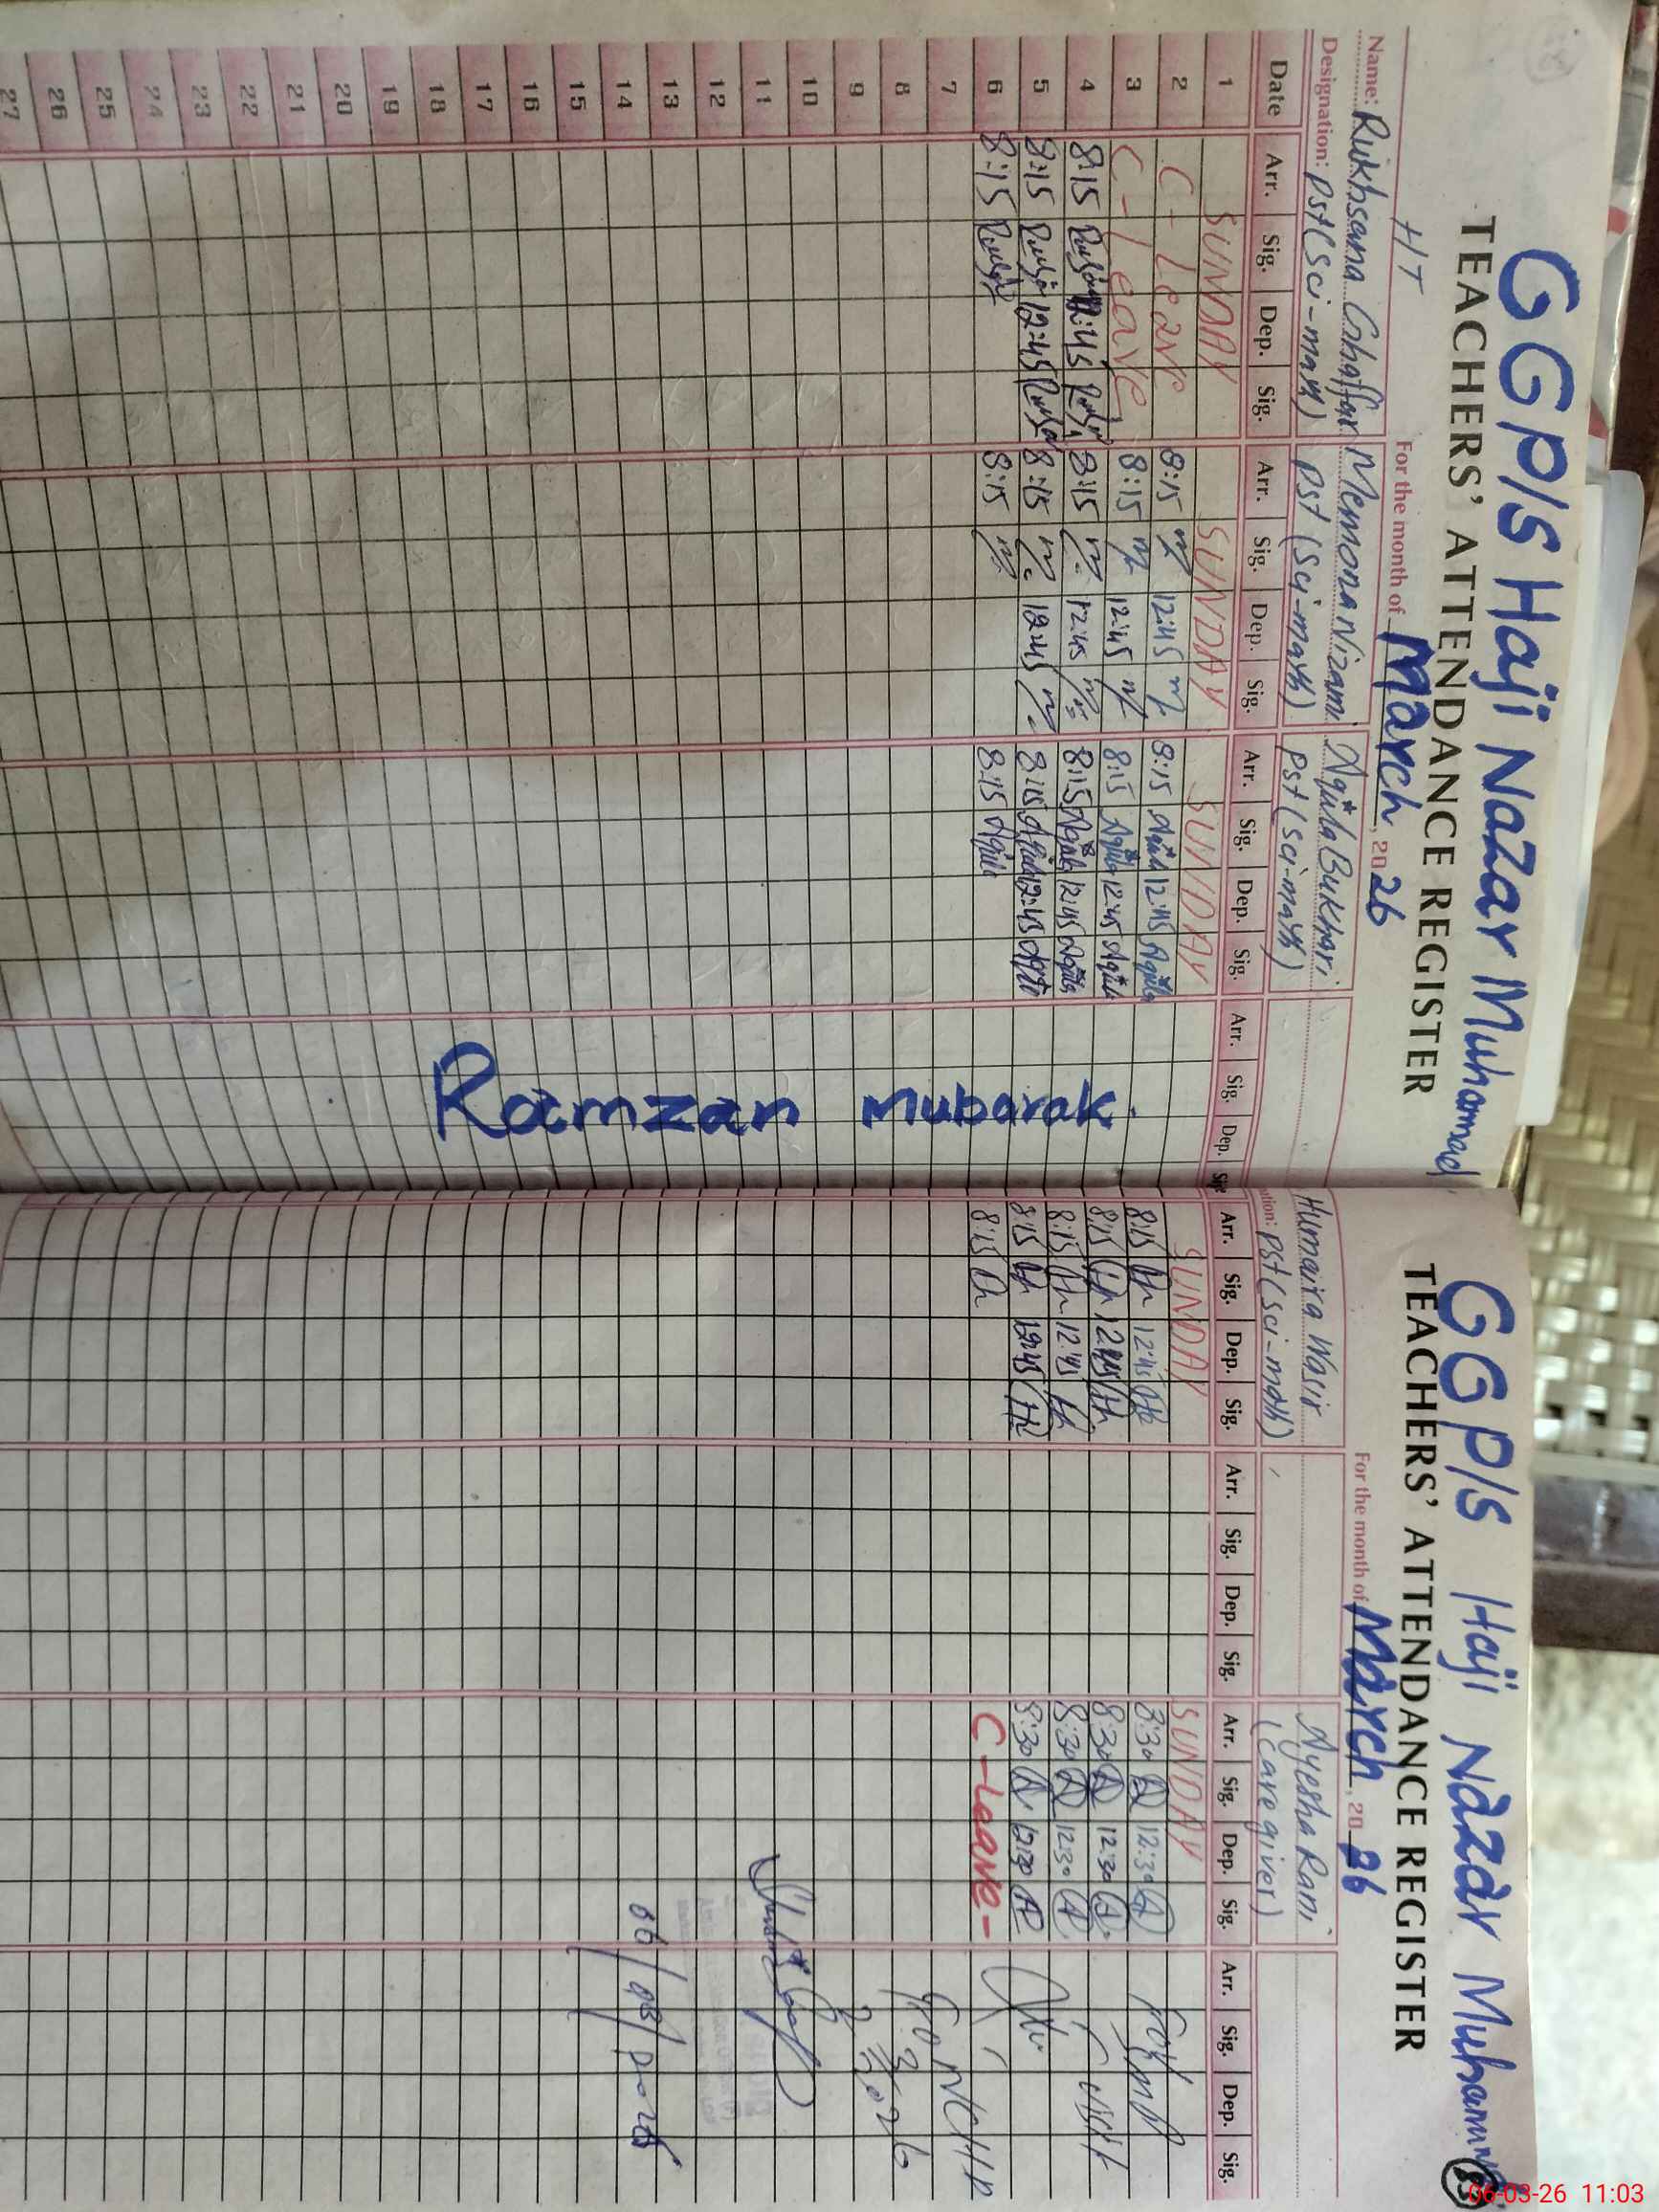 GGP/S Haji Nazar Muhammad
TEACHERS' ATTENDANCE REGISTER
HT
For the month of March, 2026
Name: Rukhsana Ghaffar Memona Nizami Aqila Bukhari
Designation: Pst (Sci-math) Pst (Sci-math) Pst (Sci-math)
Date Arr. Sig. Dep. Sig. Arr. Sig. Dep. Sig. Arr. Sig. Dep. Sig. Arr. Sig. Dep. Sig.
1 SUNDAY SUNDAY SUNDAY
2 C-Leave 8:15 12:45 8:15 Aqila 12:45 Aqila
3 C-Leave 8:15 12:45 8:15 Aqila 12:45 Aqila
4 8:15 12:45 8:15 12:45 8:15 Aqila 12:45 Aqila
5 8:15 12:45 8:15 12:45 8:15 Aqila 12:45 Aqila
6 8:15 8:15 8:15 Aqila
7
8
9
10
11
12
13
14
15
16
17
18
19
20
21
22
23
24
25
26
27
Ramzan Mubarak.
GGP/S Haji Nazar Muhammad
TEACHERS' ATTENDANCE REGISTER
For the month of March, 2026
Humaira Nasir Ayesha Rani
Pst (Sci-math) (Caregiver)
Arr. Sig. Dep. Sig. Arr. Sig. Dep. Sig. Arr. Sig. Dep. Sig. Arr. Sig. Dep. Sig.
SUNDAY SUNDAY
8:15 12:45 8:30 12:30
8:15 12:45 8:30 12:30
8:15 12:45 8:30 12:30
8:15 12:45 8:30 12:30
8:15 C-Leave-
visit
NCHD
06/03/2026
06-03-26 11:03